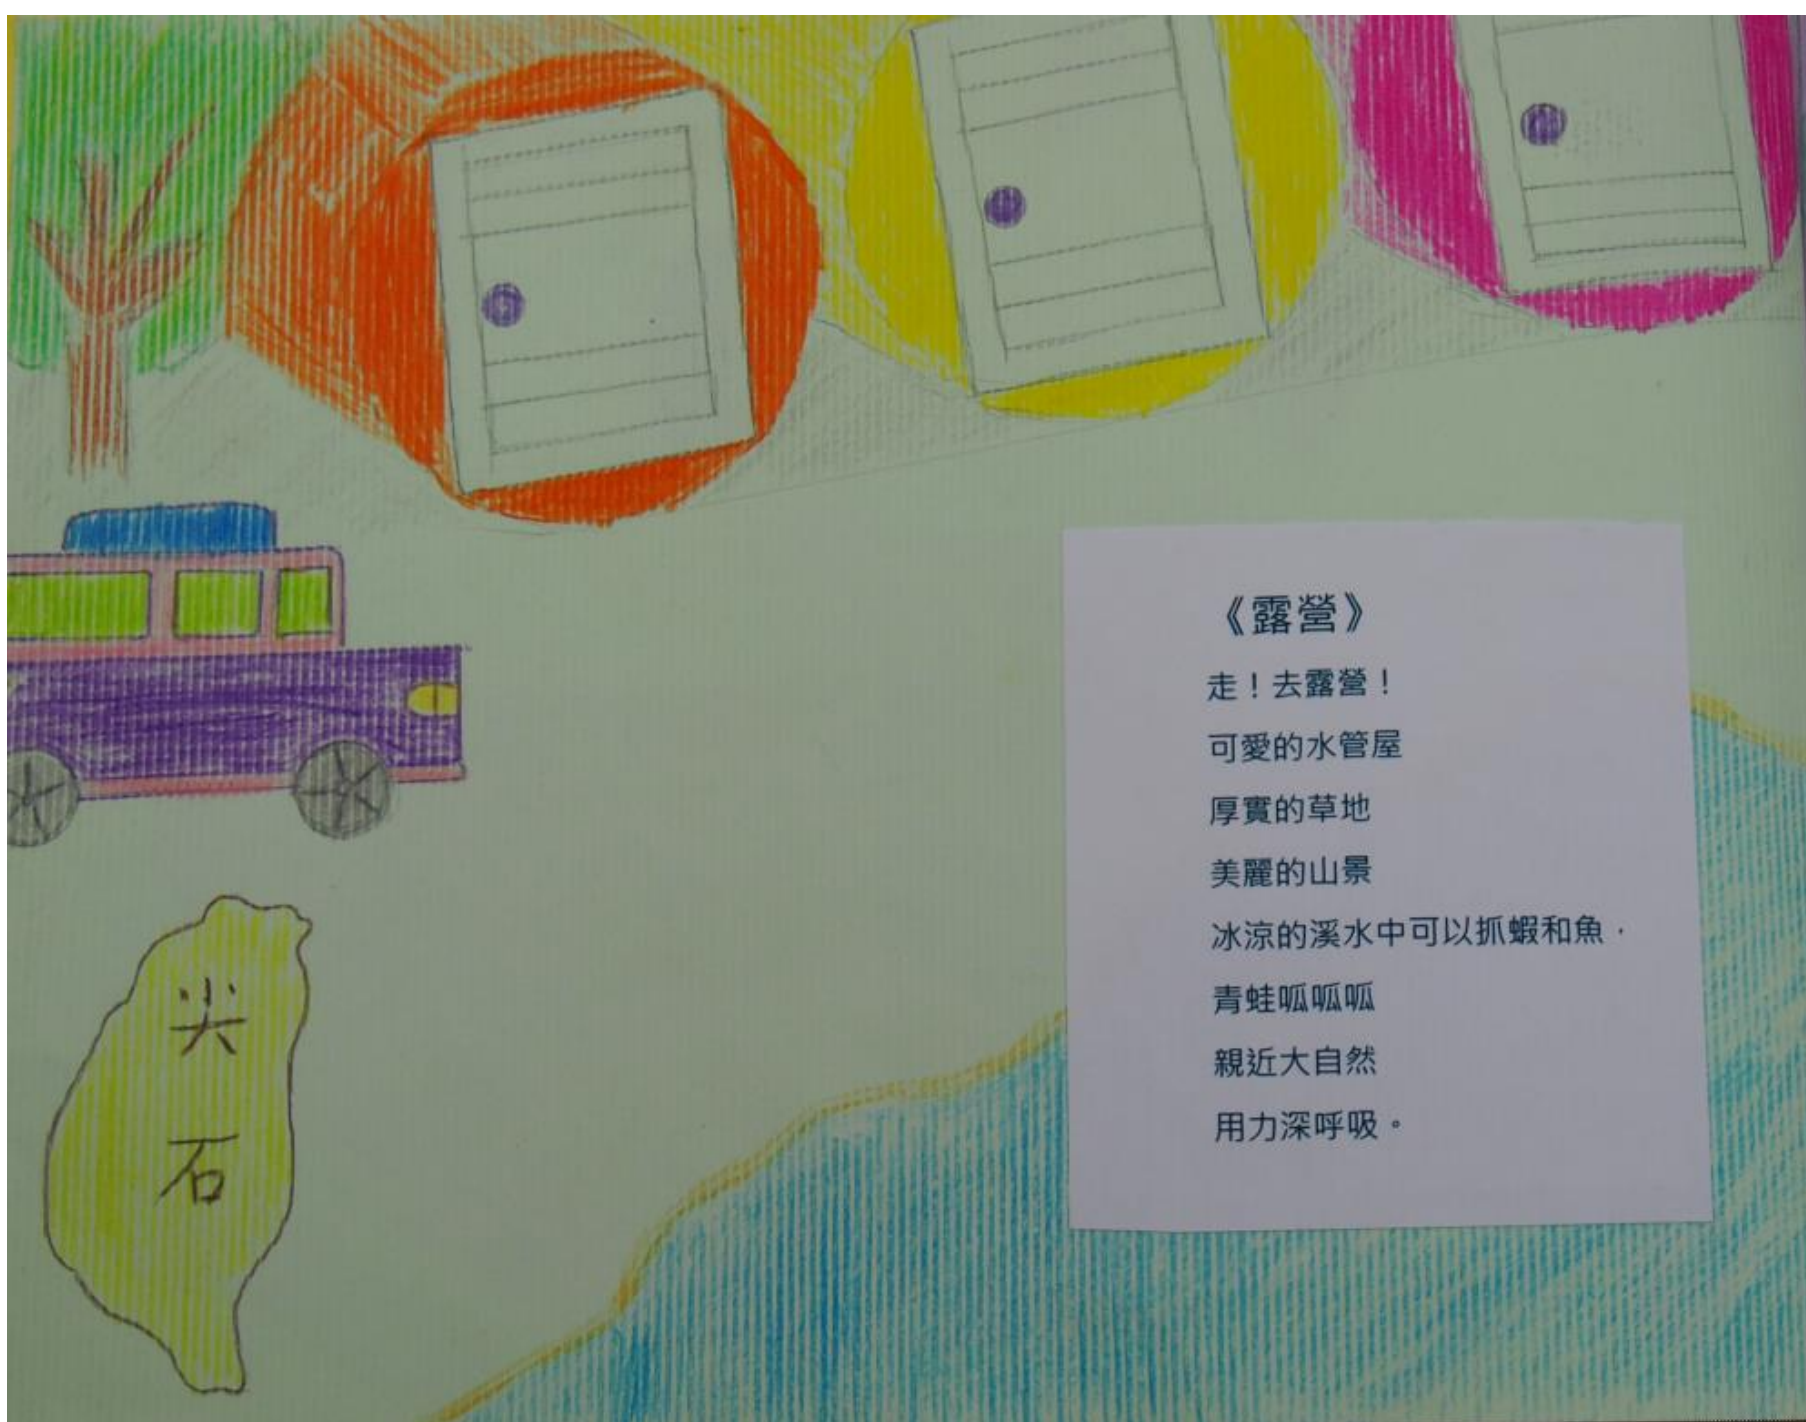 《露營》
走！去露營！
可愛的水管屋
厚實的草地
美麗的山景
冰涼的溪水中可以抓蝦和魚，
青蛙呱呱呱
親近大自然
用力深呼吸。
尖
石